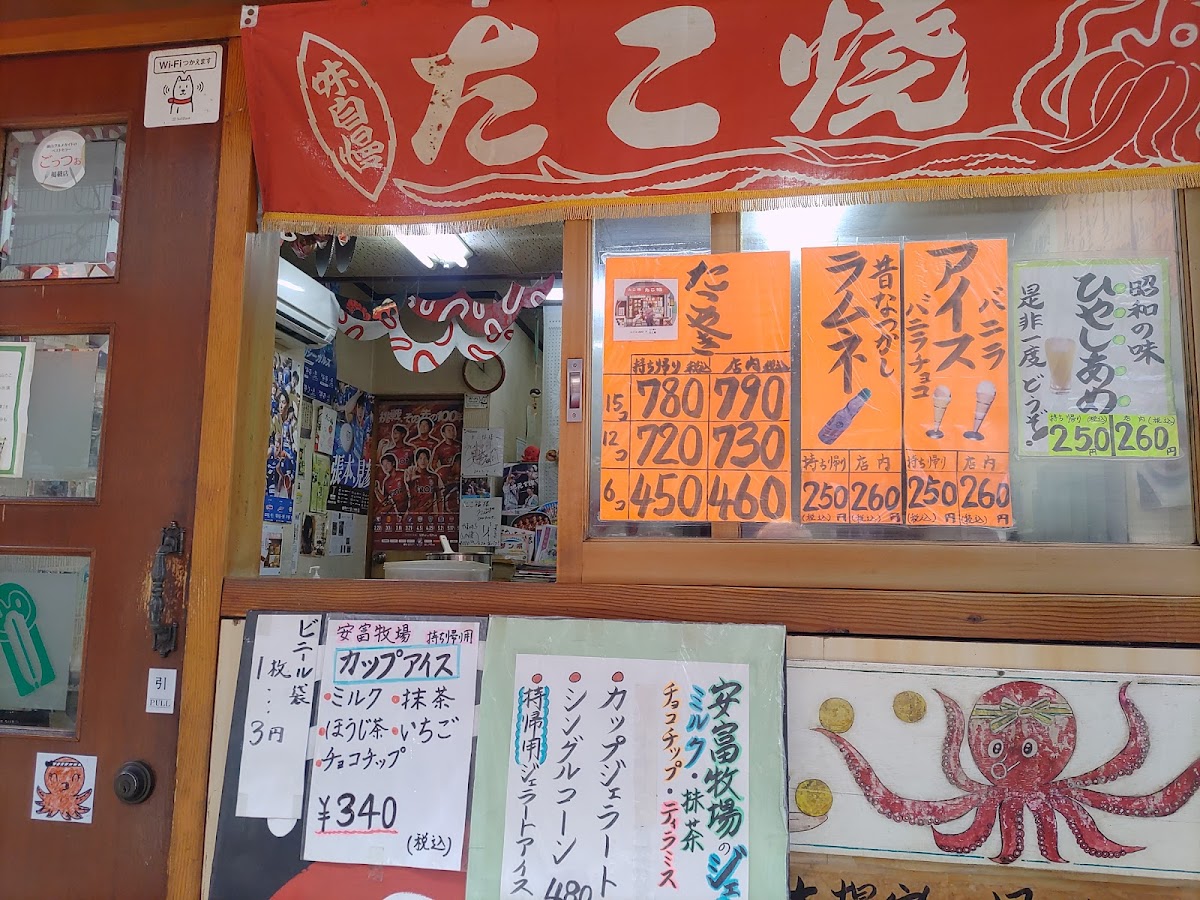 Wi-Fiつかえます
ごっつぉ
掲載店
味自慢
たこ焼
たこ焼き
持ち帰り 税込
店内 税込
15コ 780 790
12コ 720 730
6コ 450 460
昔なつかし
ラムネ
持ち帰り 店内
250 260
(税込)円 (税込)円
アイス
バニラ
バニラチョコ
持ち帰り 店内
250 260
(税込)円 (税込)円
昭和の味
ひやしあめ
是非一度どうぞ!
持ち帰り(税込) 店内(税込)
250円 260円
引
PULL
ビニール袋
1枚…3円
安富牧場 持ち帰り用
カップアイス
・ミルク ・抹茶
・ほうじ茶 ・いちご
・チョコチップ
¥340
(税込)
安富牧場のジェ
ミルク・抹茶
チョコチップ・ティラミス
・カップジェラート
・シングルコーン 480
・持帰用ジェラートアイス